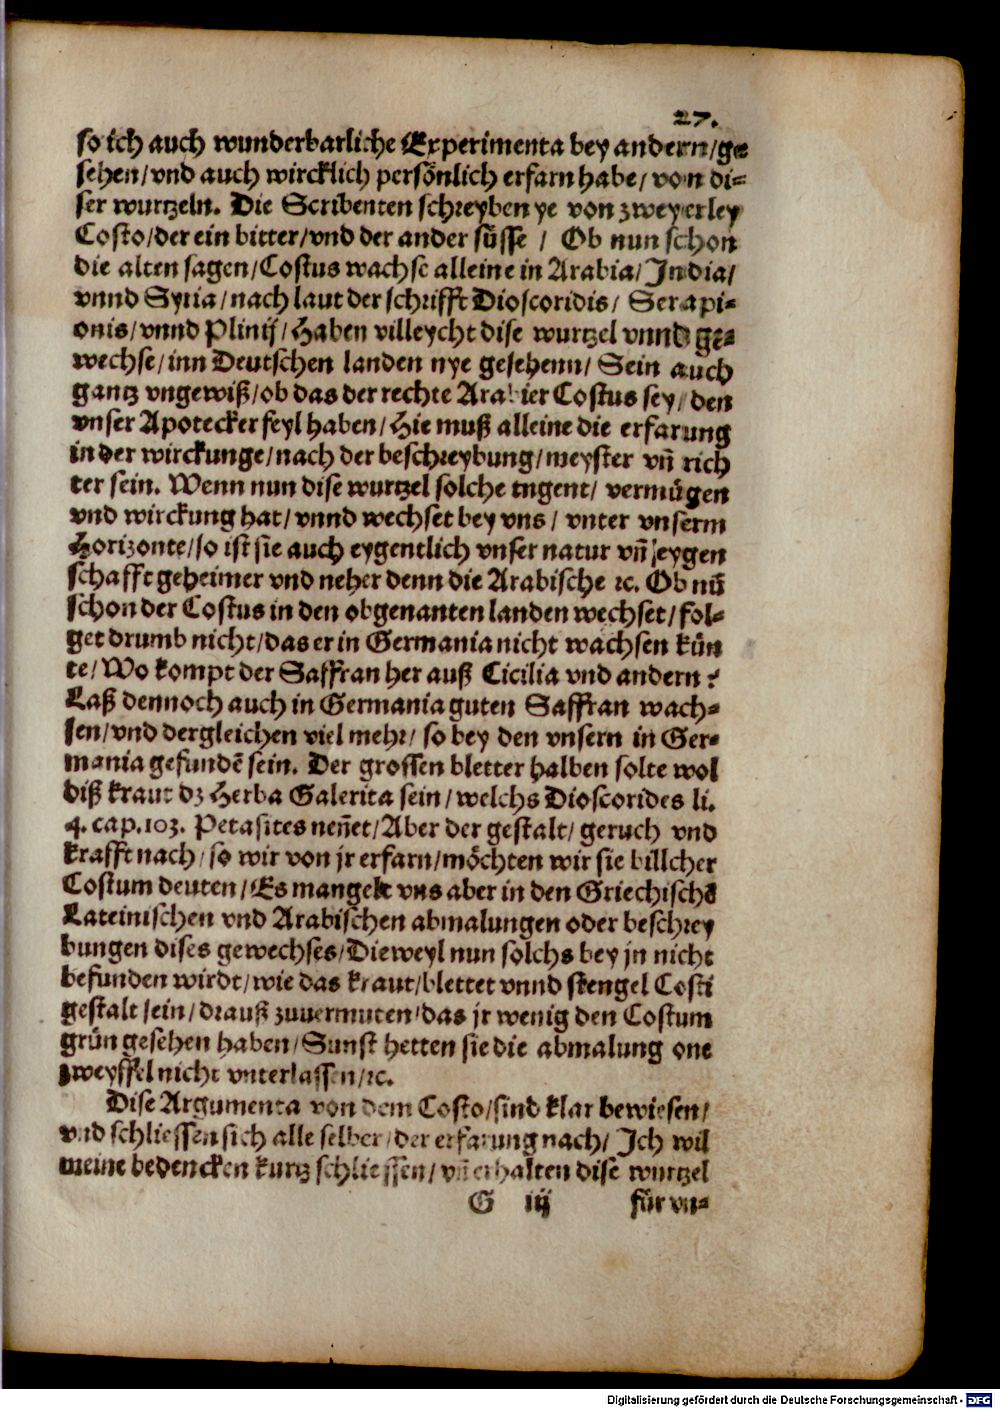 27.
so ich auch wunderbarliche Experimenta bey andern/ge
sehen/vnd auch wircklich persönlich erfarn habe/von di⸗
ser wurtzeln. Die Scribenten schreyben ye von zweyerley
Costo/der ein bitter/vnd der ander süsse / Ob nun schon
die alten sagen/Costus wachse alleine in Arabia/India/
vnnd Syria/nach laut der schrifft Dioscoridis/ Serapi⸗
onis/vnnd Plinij/Haben villeycht dise wurtzel vnnd ge⸗
wechse/inn Deutschen landen nye gesehenn/ Sein auch
gantz vngewiß/ob das der rechte Arabier Costus sey/den
vnser Apotecker feyl haben/Hie muß alleine die erfarung
in der wirckunge/nach der beschreybung/meyster vn̄ rich
ter sein. Wenn nun dise wurtzel solche tugent/ vermügen
vnd wirckung hat/vnnd wechset bey vns/ vnter vnserm
Horizonte/so ist sie auch eygentlich vnser natur vn̄ eygen
schafft geheimer vnd neher denn die Arabische ꝛc. Ob nū
schon der Costus in den obgenanten landen wechset/fol⸗
get drumb nicht/das er in Germania nicht wachsen kün
te/Wo kompt der Saffran her auß Cicilia vnd andern?
Laß dennoch auch in Germania guten Saffran wach⸗
sen/vnd dergleichen viel mehr/so bey den vnsern in Ger⸗
mania gefundē sein. Der grossen bletter halben solte wol
diß kraut dz Herba Galerita sein/welchs Dioscorides li.
4. cap.103. Petasites neñet/Aber der gestalt/geruch vnd
krafft nach/so wir von jr erfarn/möchten wir sie billcher
Costum deuten/Es mangelt vns aber in den Griechischē
Lateinischen vnd Arabischen abmalungen oder beschrey
bungen dises gewechses/Dieweyl nun solchs bey jn nicht
befunden wirdt/wie das kraut/blettet vnnd stengel Costi
gestalt sein/drauß zuuermuten/das jr wenig den Costum
grün gesehen haben/Sunst hetten sie die abmalung one
zweyffel nicht vnterlassen/ꝛc.
Dise Argumenta von dem Costo/sind klar bewiesen/
vnd schliessen sich alle selber/der erfarung nach/ Ich wil
meine bedencken kurtz schliessen/vn̄ erhalten dise wurtzel
G iij für vn⸗
Digitalisierung gefördert durch die Deutsche Forschungsgemeinschaft - DFG